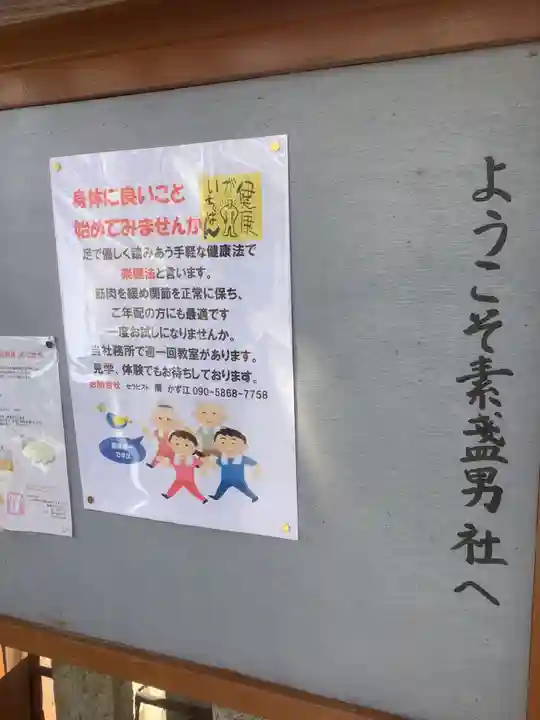 ようこそ素盞男社へ
身体に良いこと
始めてみませんか
健康
が
いちばん
足で優しく踏みあう手軽な健康法で
楽健法と言います。
筋肉を緩め関節を正常に保ち、
ご年配の方にも最適です
一度お試しになりませんか。
当社務所で週一回教室があります。
見学、体験でもお待ちしております。
お問合せ セラピスト かず江 090-5868-7758